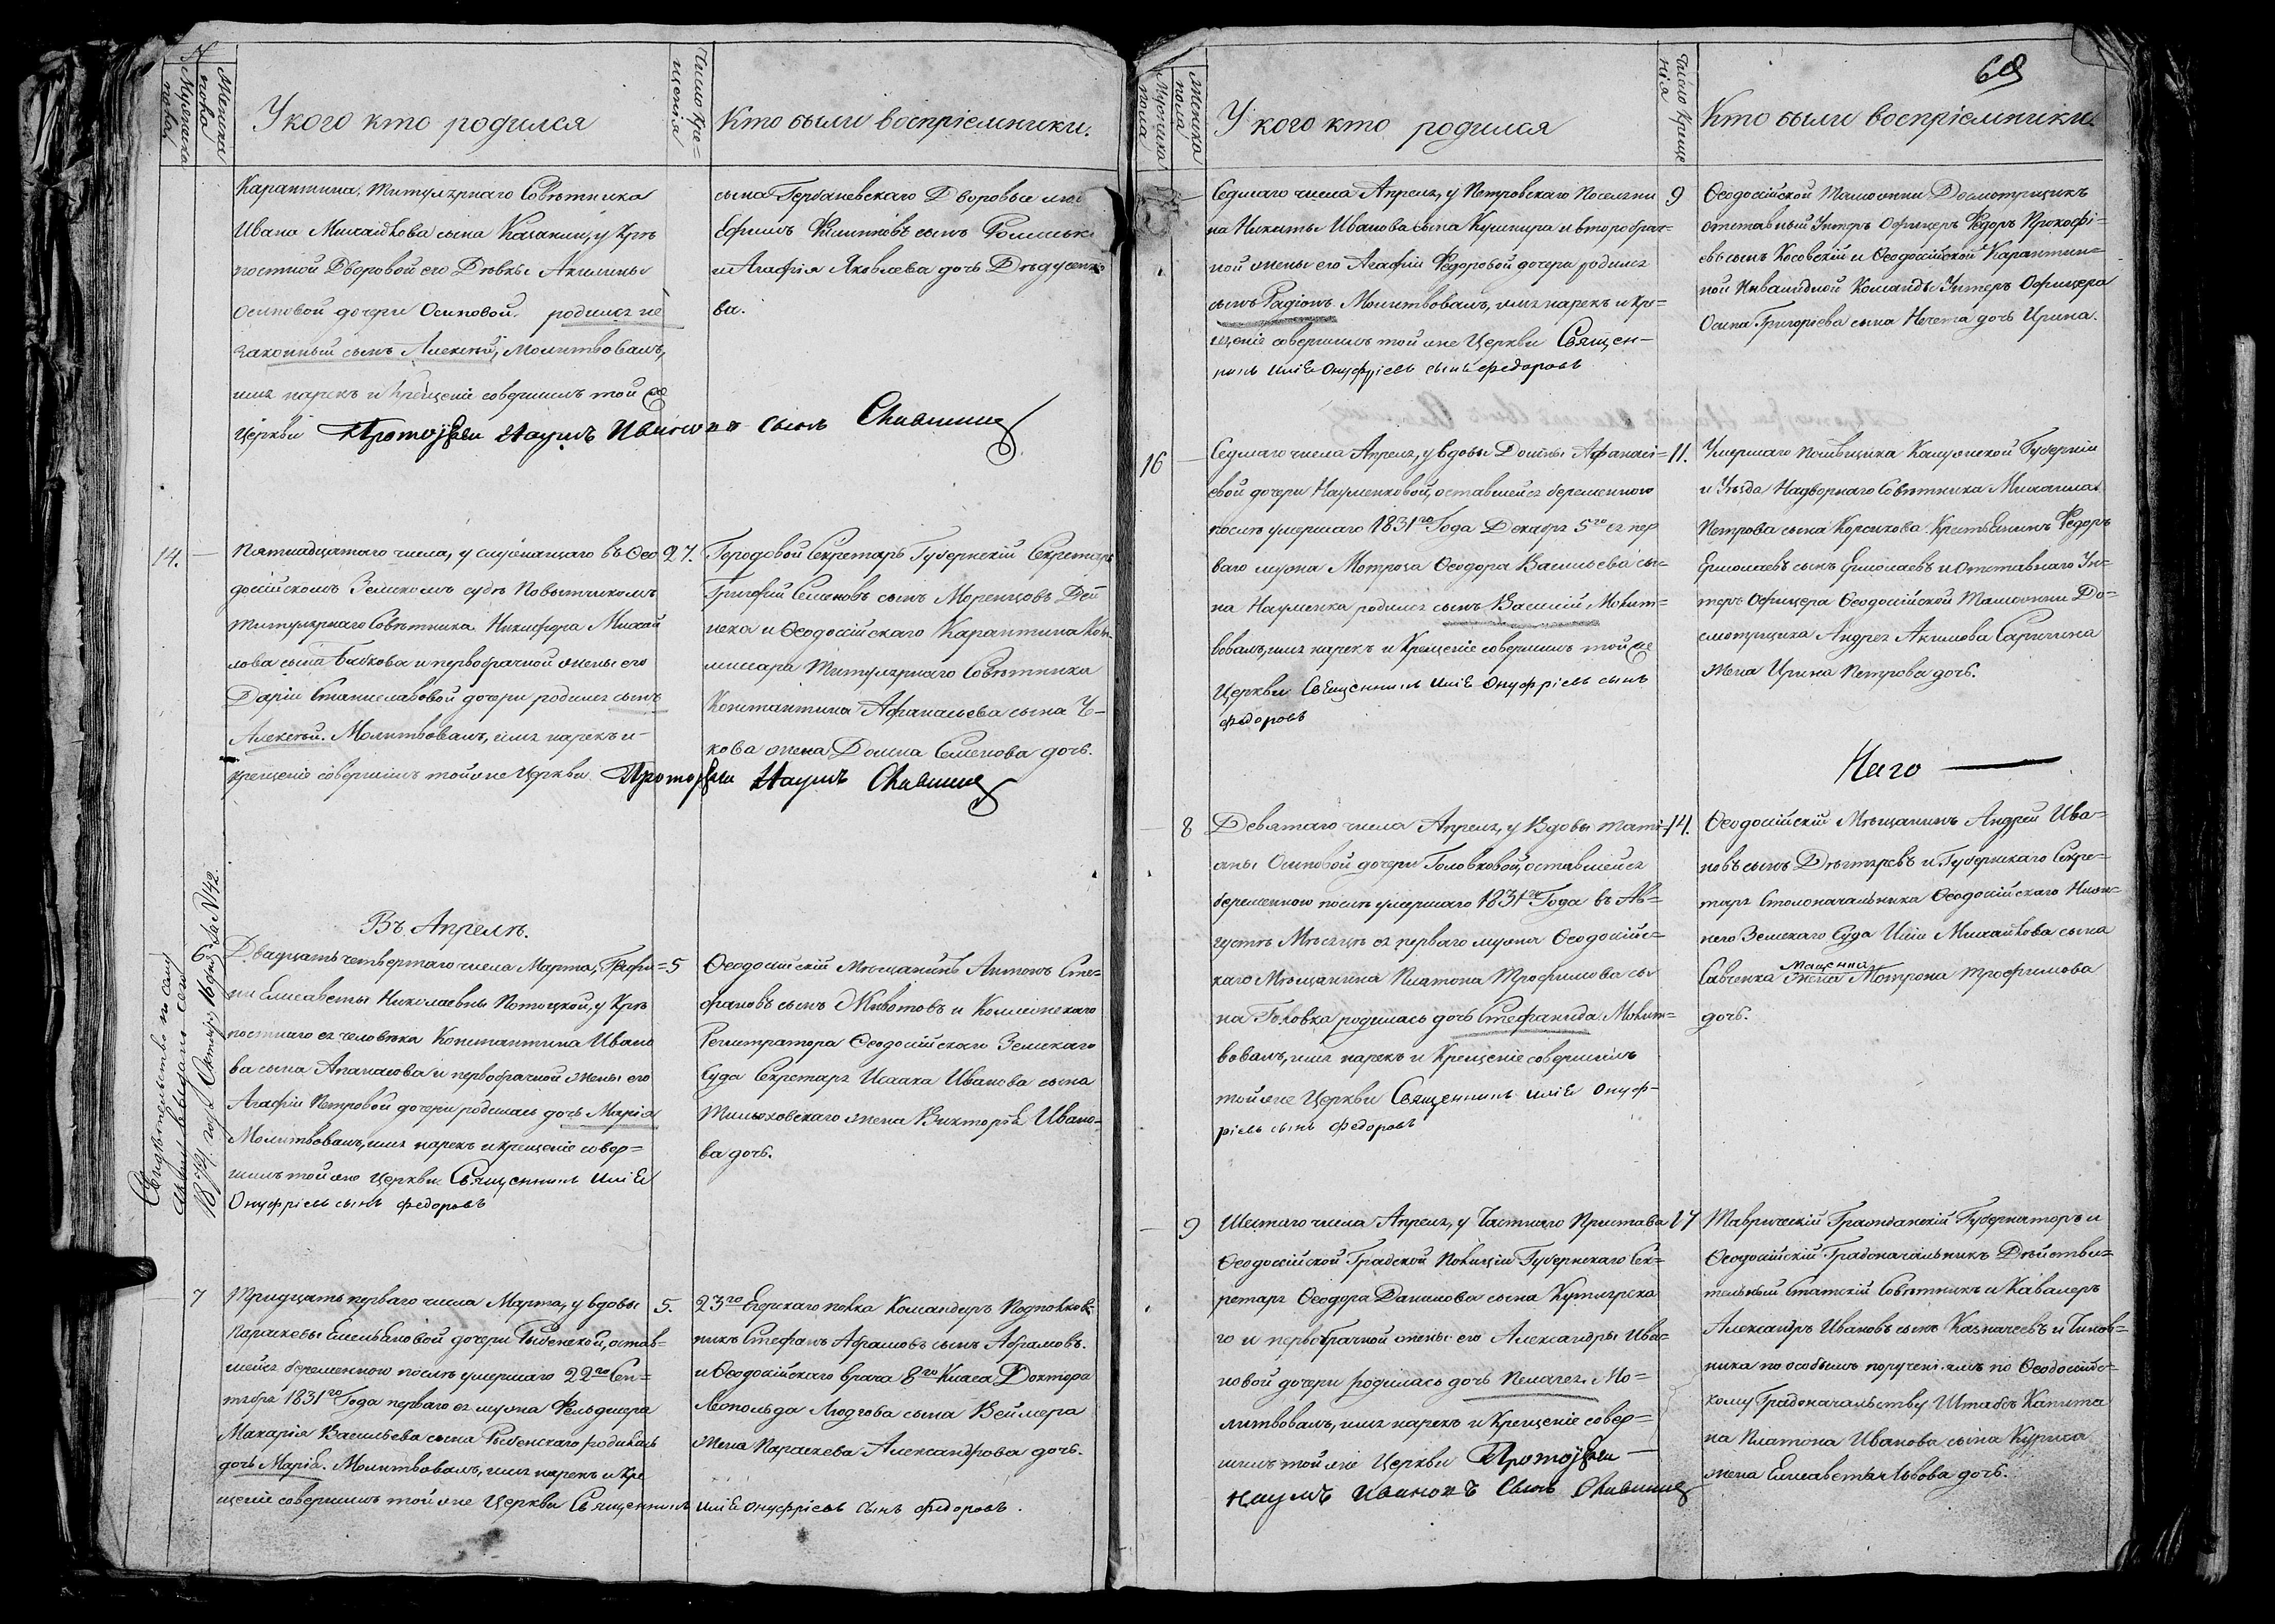 Мужеска пола
Женска пола
У кого кто родился
Число Кре=
щенія
Кто были воспріемники.
Карантина, Титулярнаго Совѣтника
Ивана Михайлова сына Казакли, у Крѣ
постной Дворовой его Дѣвки Акилины
Осиповой дочери Осиповой. родился не
законный сынъ Алексѣй, Молитвовалъ,
имя нарекъ и Крещеніе совершилъ той же
Церкви Протоіерей Наумъ Ивановъ сынъ
сына Гербаневскаго Дворовые лю
Ефимъ Филиповъ сынъ
и Агафія Яковлева дочь
ва.
14.
Пятнадцатаго числа, у служащаго въ Ѳео
досійскомъ Земскомъ судѣ Повытчикомъ
Титулярнаго Совѣтника Никифора Михай
лова сына Бабкова и первобрачной жены его
Даріи Станиславовой дочери родился сынъ
Алексѣй. Молитвовалъ, имя нарекъ и
крещеніе совершилъ той же Церкви Протоіерей Наумъ
27.
Городовой Секретарь Губернскій Секретарь
Григорій Семеновъ сынъ Моренцовъ
и Ѳеодосійскаго Карантина Ком
мисара Титулярнаго Совѣтника
Константина Афанасьева сына
кова жена Домна Семенова дочь.
Въ Апрелѣ.
Свидѣтельство по сему
1874 года Октября 16 дня за № 142.
6
Двадцать четвертаго числа Марта, Графи=
ни Елисаветы Николаевны Потоцкой, у Крѣ
постнаго ея человѣка Константина Ивано
ва сына Апанасова и первобрачной жены его
Агафіи Петровой дочери родилась дочь Марія
Молитвовалъ, имя нарекъ и крещеніе совер=
шилъ той же Церкви Священникъ Илія
Онуфріевъ сынъ Федоровъ
5
Ѳеодосійскій Мѣщанинъ Антонъ Сте=
фановъ сынъ Животовъ и Коллежскаго
Регистратора Ѳеодосійскаго Земскаго
Суда Секретаря Исаака Иванова сына
Мильховскаго жена Викторія Ивано=
ва дочь.
7
Тридцать перваго числа Марта, у вдовы
Параскевы Емельяновой дочери Рыбенской, остав=
шейся беременною послѣ умершаго 22го Сен=
тября 1831го Года перваго ея мужа Фельдшера
Макарія Васильева сына Рыбенскаго родилась
дочь Марія. Молитвовалъ, имя нарекъ и Кре
щеніе совершилъ той же Церкви Священникъ Илія Онуфріевъ Сынъ Федоровъ.
5.
23го Егерскаго полка Командиръ Подполков=
никъ Стефанъ Абрамовъ сынъ Абрамовъ.
и Ѳеодосійскаго врача 8го Класа Доктора
Леопольда сына Веймера
жена Параскева Александрова дочь.
68
Мужска пола
Женска пола
У кого кто родился
Число Креще
нія
Кто были воспріемники.
Седмаго числа Апреля, у Петровскаго Поселяни
на Никиты Иванова сына Кушнира и второбрач=
ной жены его Агафіи Федоровой дочери родился
сынъ Радіонъ. Молитвовалъ, имя нарекъ и кре=
щеніе совершилъ той же Церкви Священ-
никъ Илія Онуфріевъ сынъ Федоровъ
9
Ѳеодосійской Таможни Досмотрщикъ
отставный Унтеръ Офицеръ Федоръ Прокофі=
евъ сынъ Косовскій и Ѳеодосійской Карантин=
ной Инвалидной Команды Унтеръ Офицера
Осипа Григоріева сына Нечета дочь Ирина.
16
Седмаго числа Апреля, у вдовы Домны Афанасі=
евой дочери Науменковой, оставшейся беременною
послѣ умершаго 1831го Года Декабря 5го ея пер
ваго мужа Матроза Ѳеодора Васильева сы=
на Науменка родился сынъ Василій. Молит=
вовалъ, имя нарекъ и Крещеніе совершилъ той же
Церкви Священникъ Илія Онуфріевъ сынъ
Федоровъ
11.
Умершаго помѣщика Калужской Губерніи
и Уѣзда Надворнаго Совѣтника Михаила
Петрова сына Корсакова Крестьянинъ Федоръ
Ермолаевъ сынъ Ермолаевъ и Отставнаго Ун=
теръ Офицера Ѳеодосійской Таможни До=
смотрщика Андрея Акимова Саричина
жена Ирина Петрова дочь.
8
Девятаго числа Апреля, у Вдовы Тати=
аны Осиповой дочери Головковой, оставшейся
беременною послѣ умершаго 1831го Года въ Ав=
густѣ Мѣсяцѣ ея перваго мужа Ѳеодосійс=
каго Мѣщанина Платона Трофимова сы
на Головка родилась дочь Стефанида. Молит=
вовалъ, имя нарекъ и Крещеніе совершилъ
той же Церкви Священникъ Илія Онуф-
ріевъ сынъ Федоровъ
14.
Ѳеодосійскій Мѣщанинъ Андрей Ива=
новъ сынъ Дѣгтяревъ и Губернскаго Секре=
таря Столоначальника Ѳеодосійскаго Ниж=
няго Земскаго Суда Иліи Михайлова сына
Савченка Жена Мотрона Трофимова
дочь.
9
Шестаго числа Апреля, у Частнаго Пристава
Ѳеодосійской Градской Полиціи Губернскаго Сек=
ретаря Ѳеодора Данилова сына
го и первобрачной жены его Александры Ива=
новой дочери родилась дочь Пелагея. Мо=
литвовалъ, имя нарекъ и Крещеніе совер=
шилъ той же Церкви Протоіерей
Наумъ Ивановъ Сынъ
27
Таврическій Гражданскій Губернаторъ и
Ѳеодосійскій Градоначальникъ Дѣйстви=
тельный Статскій Совѣтникъ и Кавалеръ
Александръ Ивановъ сынъ Казначеевъ и Чинов=
ника по особымъ порученіямъ по Ѳеодосійс=
кому Градоначальству Штабсъ Капита
на Платона Иванова сына
жена Елисавета Львова дочь.